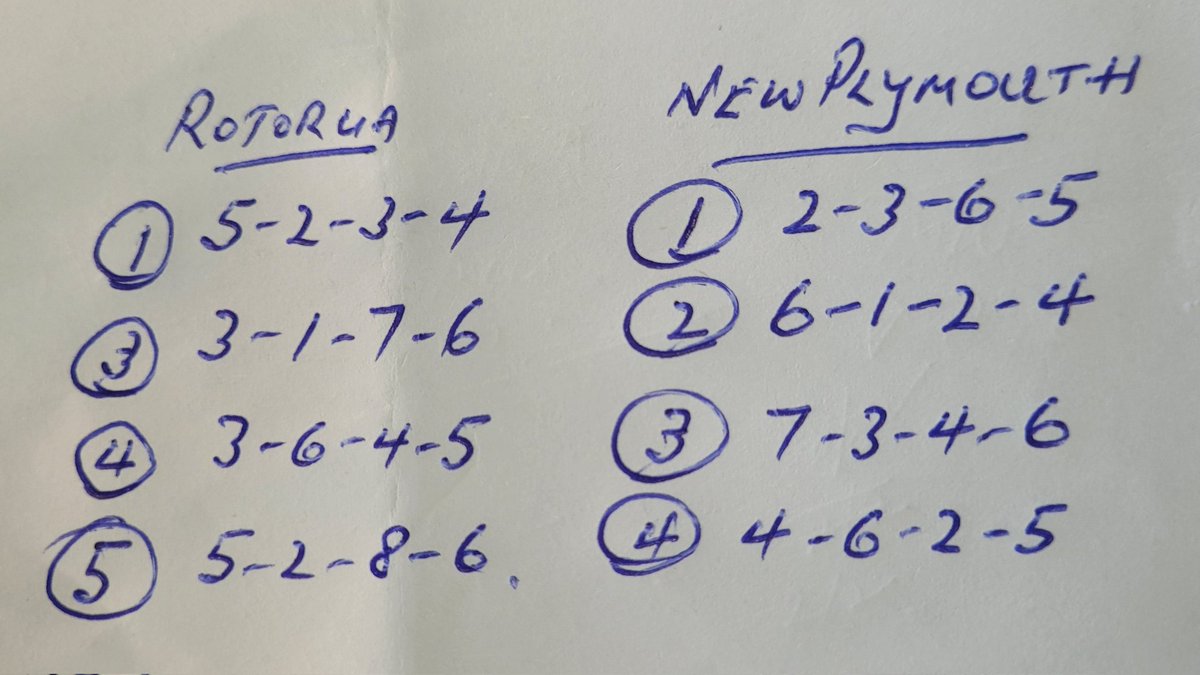 ROTORUA
① 5-2-3-4
③ 3-1-7-6
④ 3-6-4-5
⑤ 5-2-8-6.
NEW PLYMOUTH
① 2-3-6-5
② 6-1-2-4
③ 7-3-4-6
④ 4-6-2-5